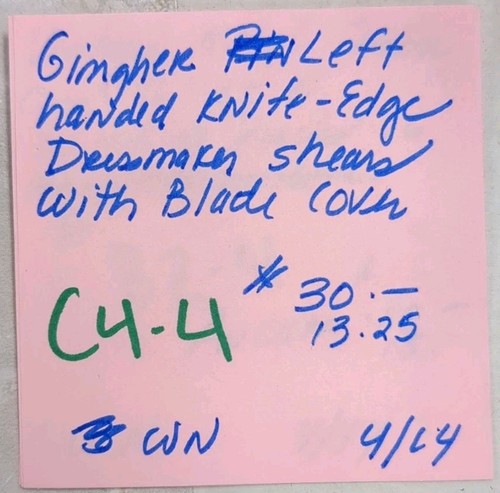 Gingher Left
handed Knife-Edge
Dressmaker shears
with Blade Cover
C4-4
* 30.—
13.25
WN 4/14